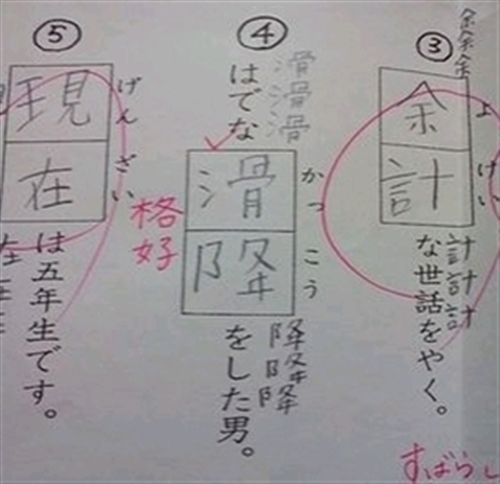 ③
余余余
余計
よけい
計計計
な世話をやく。
すばらし
④
滑滑滑
はでな
滑降
かっこう
格好
降降降
をした男。
⑤
現在
げんざい
は五年生です。